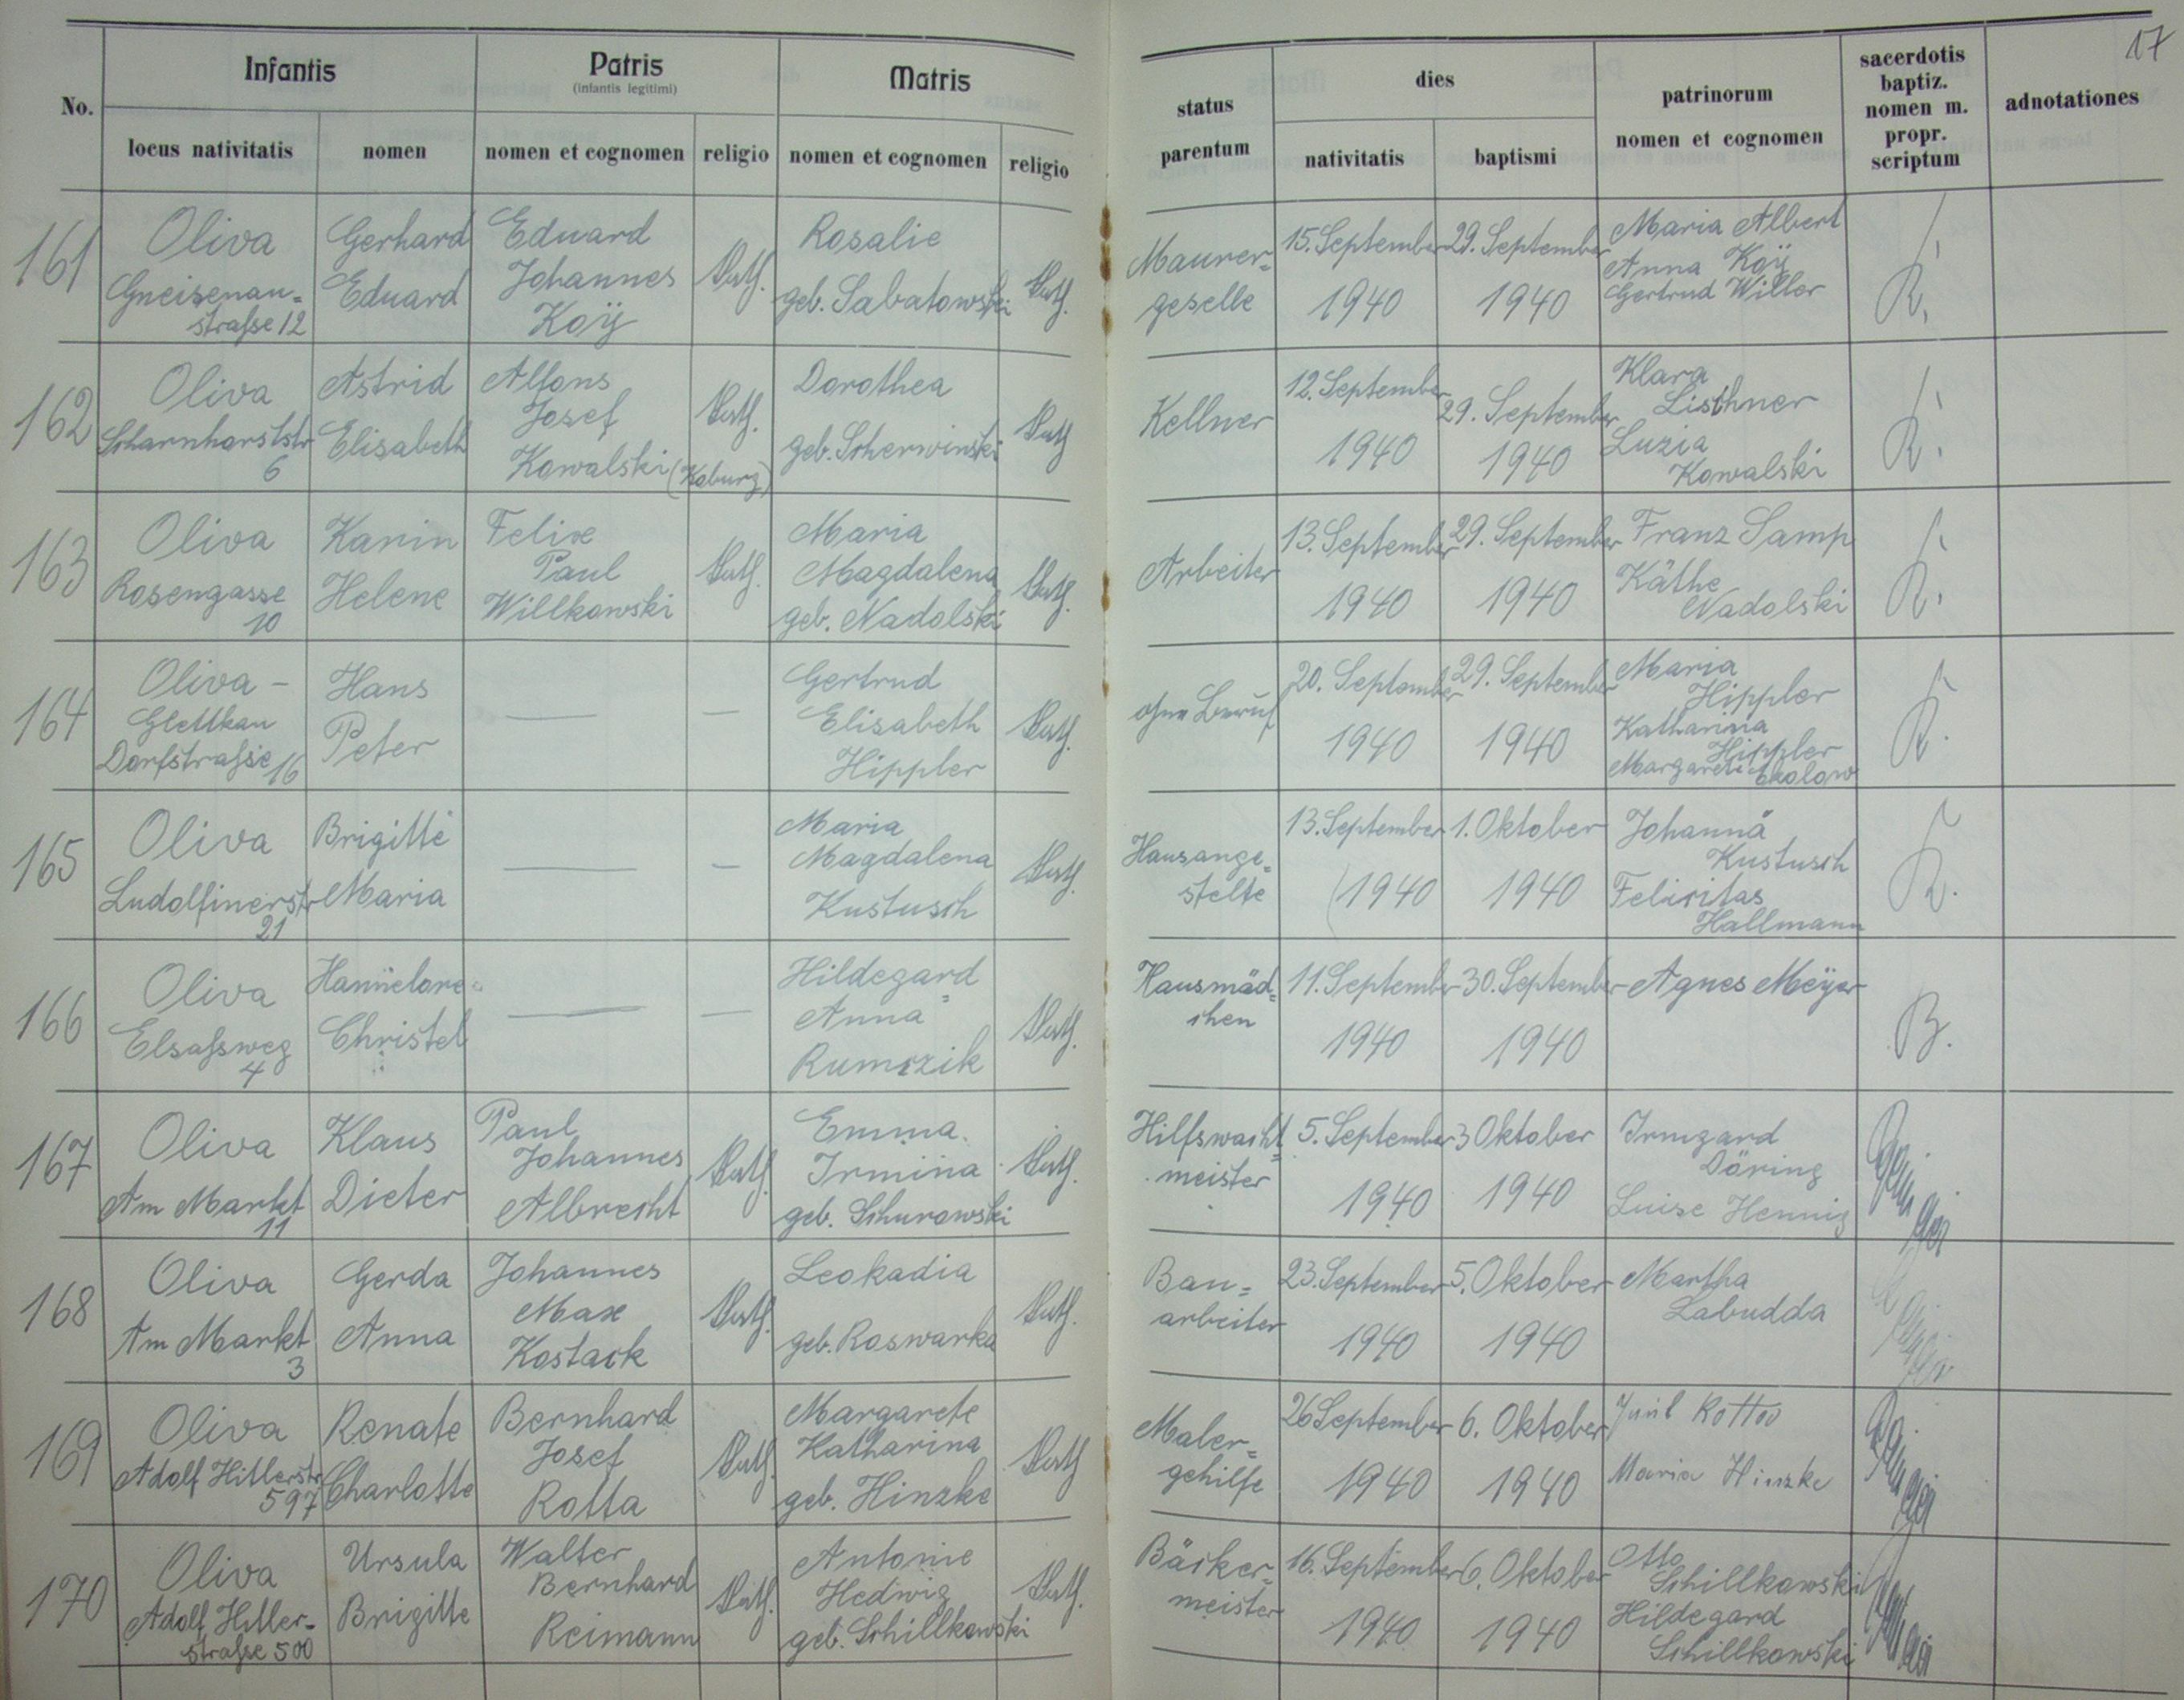 17
No.
Infantis
locus nativitatis
nomen
Patris
(infantis legitimi)
nomen et cognomen
religio
Matris
nomen et cognomen
religio
status
parentum
dies
nativitatis
baptismi
patrinorum
nomen et cognomen
sacerdotis
baptiz.
nomen m.
propr.
scriptum
adnotationes
161
Oliva
Gneisenau-
strasse 12
Gerhard
Eduard
Eduard
Johannes
Koÿ
kath.
Rosalie
geb. Sabatowski
kath.
Maurer-
geselle
15. September
1940
29. September
1940
Maria Albert
Anna Koÿ
Gertrud Willer
K.
162
Oliva
Scharnhorststr
6
Astrid
Elisabeth
Alfons
Josef
Kowalski (Koburg)
kath.
Dorothea
geb. Scherwinski
kath
Kellner
12. September
1940
29. September
1940
Klara
Lischner
Luzia
Kowalski
K.
163
Oliva
Rosengasse
10
Karin
Helene
Felix
Paul
Willkowski
kath.
Maria
Magdalena
geb. Nadolski
kath.
Arbeiter
13. September
1940
29. September
1940
Franz Samp
Käthe
Nadolski
K.
164
Oliva -
Glettkau
Dorfstrasse 16
Hans
Peter
—
—
Gertrud
Elisabeth
Hippler
kath.
ohne Beruf
20. September
1940
29. September
1940
Maria
Hippler
Katharina
Hippler
Margarete
K.
165
Oliva
Ludolfinerstr
21
Brigitte
Maria
—
—
Maria
Magdalena
Kustusch
kath.
Hausange-
stellte
13. September
1940
1. Oktober
1940
Johanna
Kustusch
Felicitas
Hallmann
K.
166
Oliva
Elsassweg
4
Hannelore
Christel
—
—
Hildegard
Anna
Rumczik
kath.
Hausmäd-
chen
11. September
1940
30. September
1940
Agnes Meÿer
B.
167
Oliva
Am Markt
11
Klaus
Dieter
Paul
Johannes
Albrecht
kath.
Emma
Irmina
geb. Schurowski
kath.
Hilfswacht-
meister
5. September
1940
3 Oktober
1940
Irmgard
Döring
Luise Hennig
168
Oliva
Am Markt
3
Gerda
Anna
Johannes
Max
Kostack
kath.
Leokadia
geb. Roswarka
kath.
Bau-
arbeiter
23. September
1940
5. Oktober
1940
Martha
Labudda
169
Oliva
Adolf Hitlerstr
597
Renate
Charlotte
Bernhard
Josef
Rotta
kath.
Margarete
Katharina
geb. Hinzke
kath
Maler-
gehilfe
26 September
1940
6. Oktober
1940
Maria Hinzke
170
Oliva
Adolf Hitler-
strasse 500
Ursula
Brigitte
Walter
Bernhard
Reimann
kath.
Antonie
Hedwig
geb. Schillkowski
kath.
Bäcker-
meister
16. September
1940
6. Oktober
1940
Otto
Schillkowski
Hildegard
Schillkowski